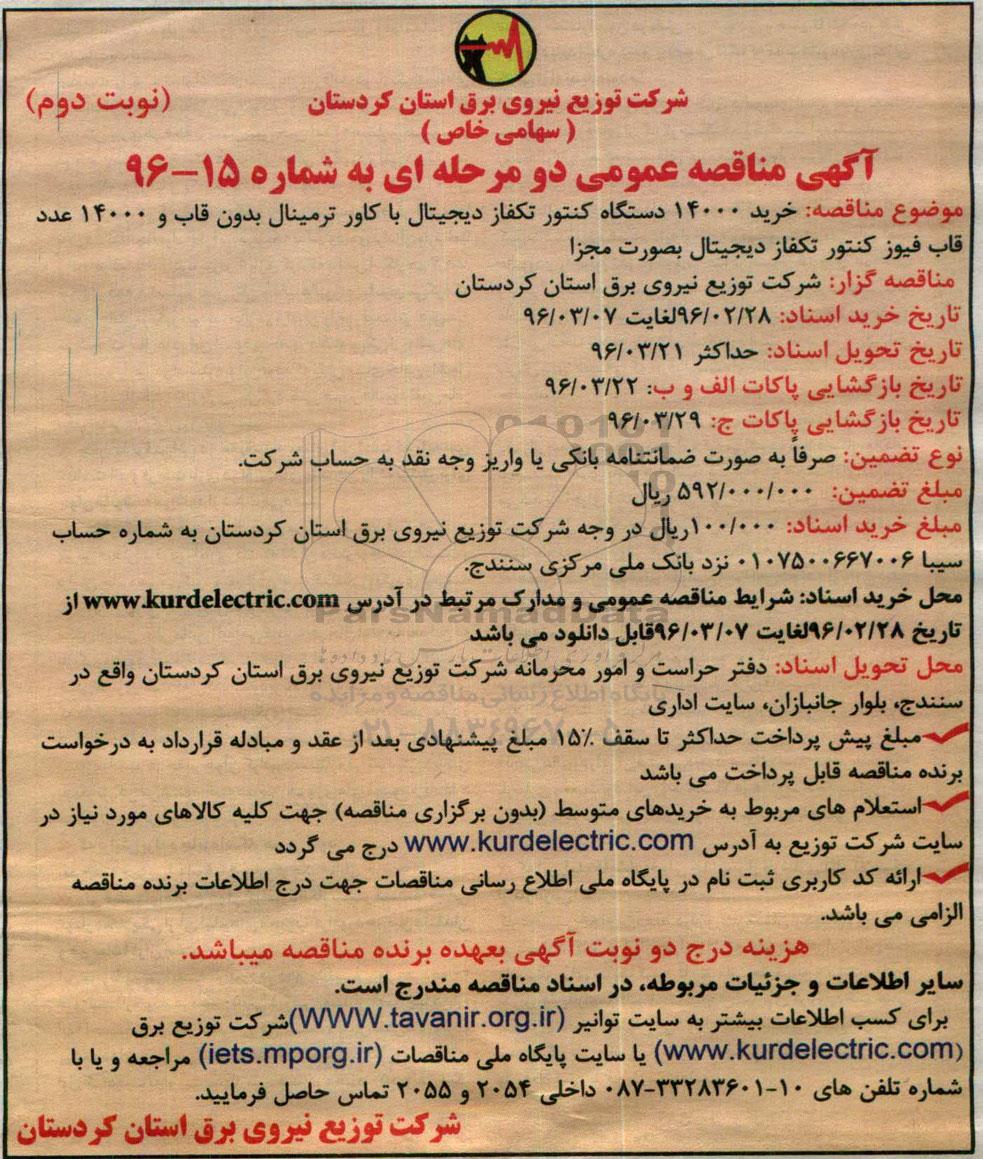 شرکت توزیع نیروی برق استان کردستان
(نوبت دوم)
( سهامی خاص )
آگهی مناقصه عمومی دو مرحله ای به شماره ۱۵-۹۶
موضوع مناقصه: خرید ۱۴۰۰۰ دستگاه کنتور تکفاز دیجیتال با کاور ترمینال بدون قاب و ۱۴۰۰۰ عدد
قاب فیوز کنتور تکفاز دیجیتال بصورت مجزا
مناقصه گزار: شرکت توزیع نیروی برق استان کردستان
تاریخ خرید اسناد: ۹۶/۰۲/۲۸لغایت ۹۶/۰۳/۰۷
تاریخ تحویل اسناد: حداکثر ۹۶/۰۳/۲۱
تاریخ بازگشایی پاکات الف و ب: ۹۶/۰۳/۲۲
تاریخ بازگشایی پاکات ج: ۹۶/۰۳/۲۹
نوع تضمین: صرفاً به صورت ضمانتنامه بانکی یا واریز وجه نقد به حساب شرکت.
مبلغ تضمین: ۵۹۲/۰۰۰/۰۰۰ ریال
مبلغ خرید اسناد: ۱۰۰/۰۰۰ریال در وجه شرکت توزیع نیروی برق استان کردستان به شماره حساب
سیبا ۰۱۰۷۵۰۰۶۶۷۰۰۶ نزد بانک ملی مرکزی سنندج.
محل خرید اسناد: شرایط مناقصه عمومی و مدارک مرتبط در آدرس www.kurdelectric.com از
تاریخ ۹۶/۰۲/۲۸لغایت ۹۶/۰۳/۰۷قابل دانلود می باشد
محل تحویل اسناد: دفتر حراست و امور محرمانه شرکت توزیع نیروی برق استان کردستان واقع در
سنندج، بلوار جانبازان، سایت اداری
مبلغ پیش پرداخت حداکثر تا سقف ۱۵٪ مبلغ پیشنهادی بعد از عقد و مبادله قرارداد به درخواست
برنده مناقصه قابل پرداخت می باشد
استعلام های مربوط به خریدهای متوسط (بدون برگزاری مناقصه) جهت کلیه کالاهای مورد نیاز در
سایت شرکت توزیع به آدرس www.kurdelectric.com درج می گردد
ارائه کد کاربری ثبت نام در پایگاه ملی اطلاع رسانی مناقصات جهت درج اطلاعات برنده مناقصه
الزامی می باشد.
هزینه درج دو نوبت آگهی بعهده برنده مناقصه میباشد.
سایر اطلاعات و جزئیات مربوطه، در اسناد مناقصه مندرج است.
برای کسب اطلاعات بیشتر به سایت توانیر (WWW.tavanir.org.ir)شرکت توزیع برق
(www.kurdelectric.com) یا سایت پایگاه ملی مناقصات (iets.mporg.ir) مراجعه و یا با
شماره تلفن های ۱۰-۰۸۷-۳۳۲۸۳۶۰۱ داخلی ۲۰۵۴ و ۲۰۵۵ تماس حاصل فرمایید.
شرکت توزیع نیروی برق استان کردستان
ParsNamadData
پایگاه اطلاع رسانی مناقصه و مزایده